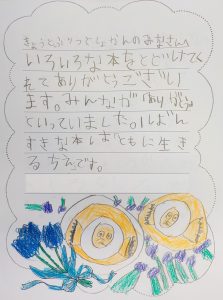 きょうとふりつとしょかんのみなさんへ
いろいろな本をとどけてく
れてありがとうござい
ます。みんなが「ありがとう」
といっていました。いちばん
すきな本は「ともに生き
るちえ」です。